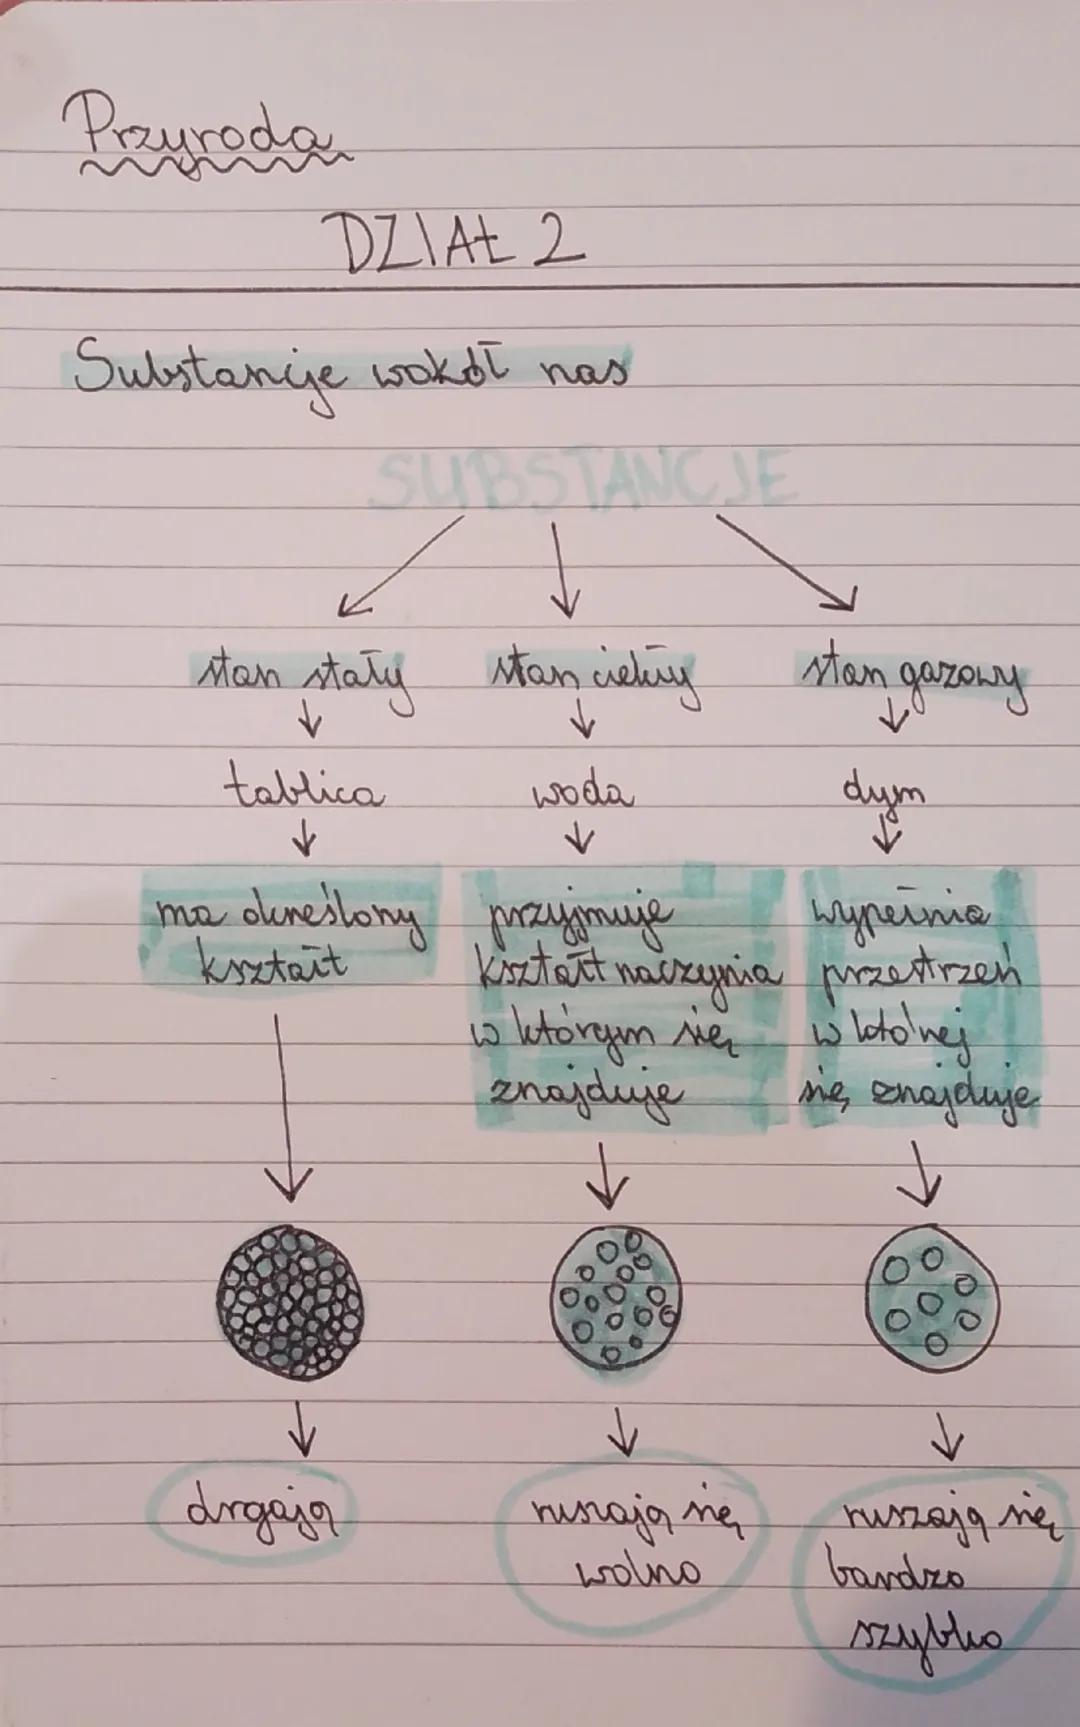 Przyroda
DZIAŁ 2
Substancje wokół nas
SUBSTANCJE
stan stały stan ciekły stan gazowy
tablica woda dym
ma określony
kształt
przyjmuje
kształt naczynia
w którym się
znajduje
wypełnia
przestrzeń
w której
się znajduje
drgają
ruszają się
wolno
ruszają się
bardzo
szybko